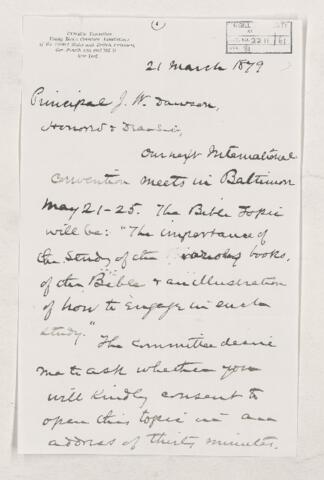 Executive Committee
Young Men's Christian Associations
of the United States and British Provinces,
New York
21 March 1879
Principal J. W. Dawson,
Honored & Dear Sir,
Our next International
Convention meets in Baltimore
May 21-25. The Bible topic
will be: "The importance of
the study of the various books,
of the Bible & an illustration
of how to engage in such
study."
The Committee desire
me to ask whether you
will kindly consent to
open this topic in an
address of thirty minutes.